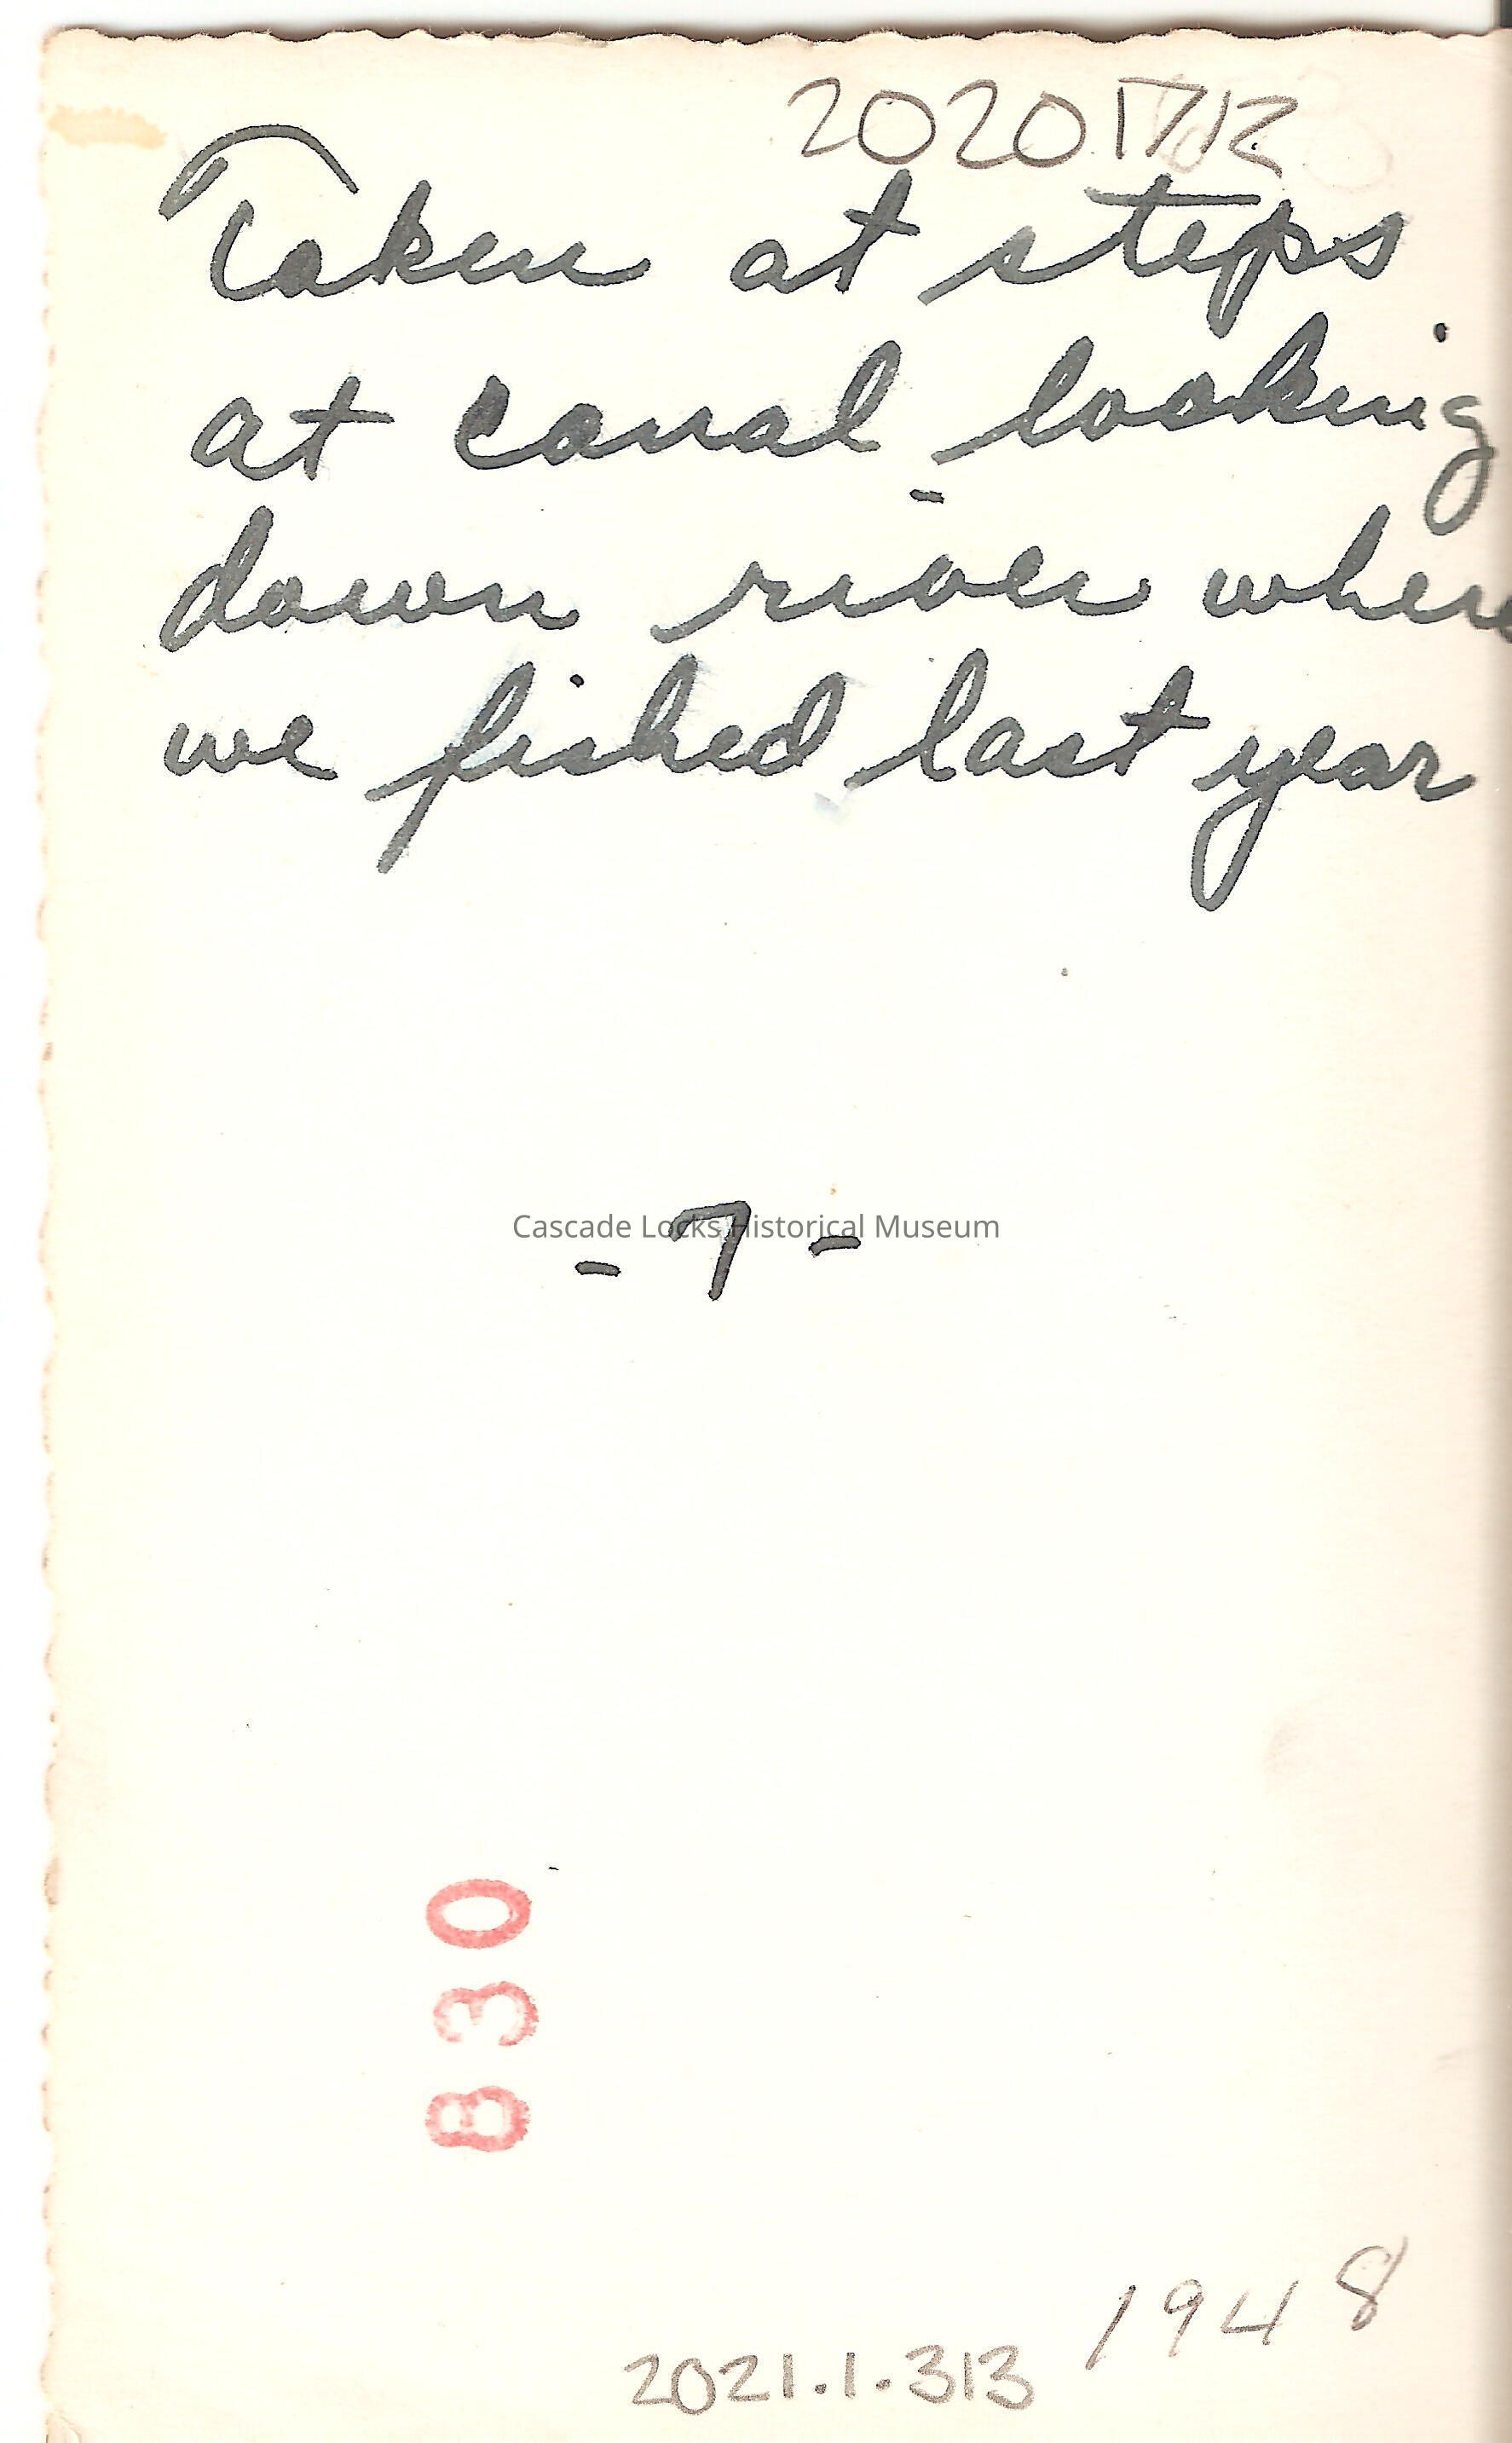 Taken at steps
at canal looking
down river where
we fished last year
Cascade Locks Historical Museum
- 7 -
830
1948
2021.1.313